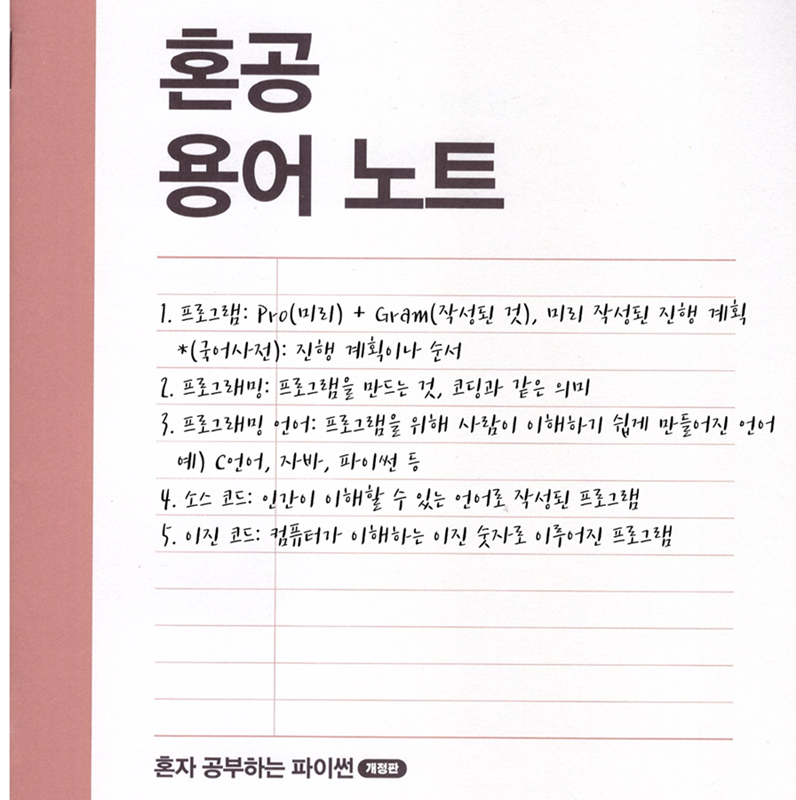 혼공
용어 노트
1. 프로그램: Pro(미리) + Gram(작성된 것), 미리 작성된 진행 계획
*(국어사전): 진행 계획이나 순서
2. 프로그래밍: 프로그램을 만드는 것, 코딩과 같은 의미
3. 프로그래밍 언어: 프로그램을 위해 사람이 이해하기 쉽게 만들어진 언어
예) C언어, 자바, 파이썬 등
4. 소스 코드: 인간이 이해할 수 있는 언어로 작성된 프로그램
5. 이진 코드: 컴퓨터가 이해하는 이진 숫자로 이루어진 프로그램
혼자 공부하는 파이썬 개정판